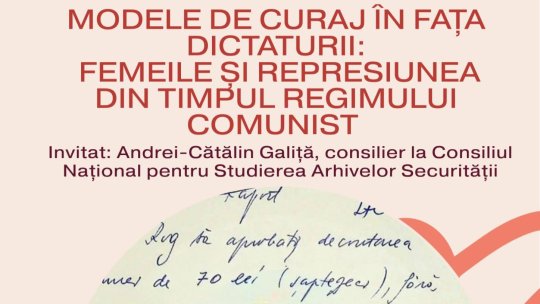 MODELE DE CURAJ ÎN FAȚA
DICTATURII:
FEMEILE ȘI REPRESIUNEA
DIN TIMPUL REGIMULUI
COMUNIST
Invitat: Andrei-Cătălin Galiță, consilier la Consiliul
Național pentru Studierea Arhivelor Securității
Raport
Rog să aprobați decontarea
unei de 70 lei (șaptezeci), fără